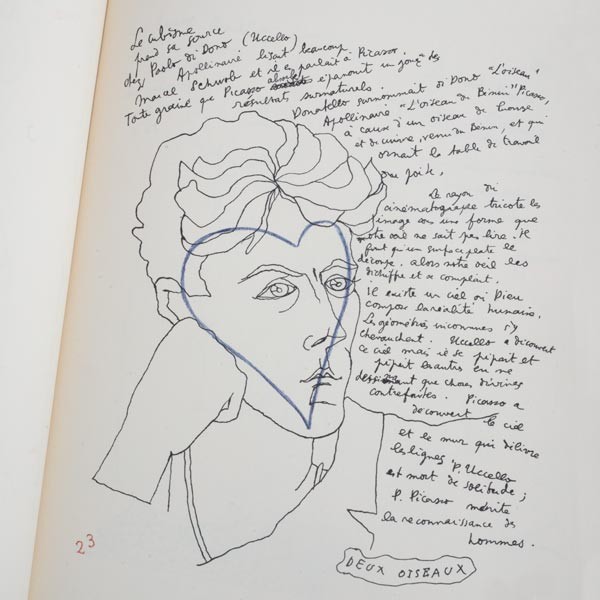 Le cubisme
prend sa source
chez Paolo di Dono (Uccello)
Apollinaire lisait beaucoup
Marcel Schwob et il en parlait à Picasso.
Toute graine que Picasso absorbe s'épanouit un jour des
résultats surnaturels.
Donatello surnommait di Dono "L'oiseau"
Apollinaire "L'oiseau du Benin" Picasso,
à cause d'un oiseau de bronze
et de cuivre, venu du Benin, et qui
ornait la table de travail
du poète.
Le rayon du
cinématographe tricote les
images sous une forme que
notre œil ne sait pas lire. Il
faut qu'un surface plate le
découpe. alors notre œil les
déchiffre et se complaint.
Il existe un ciel où Dieu
compose la réalité humaine.
Les géométries inconnues s'y
chevauchent. Uccello a découvert
ce ciel mais il se pipait et
pipait les autres en ne
dessinant que choses divines
contrefaites. Picasso a
découvert le ciel
et le mur qui délivre
les lignes P. Uccello
est mort de solitude ;
P. Picasso mérite
la reconnaissance des
hommes.
23
DEUX OISEAUX